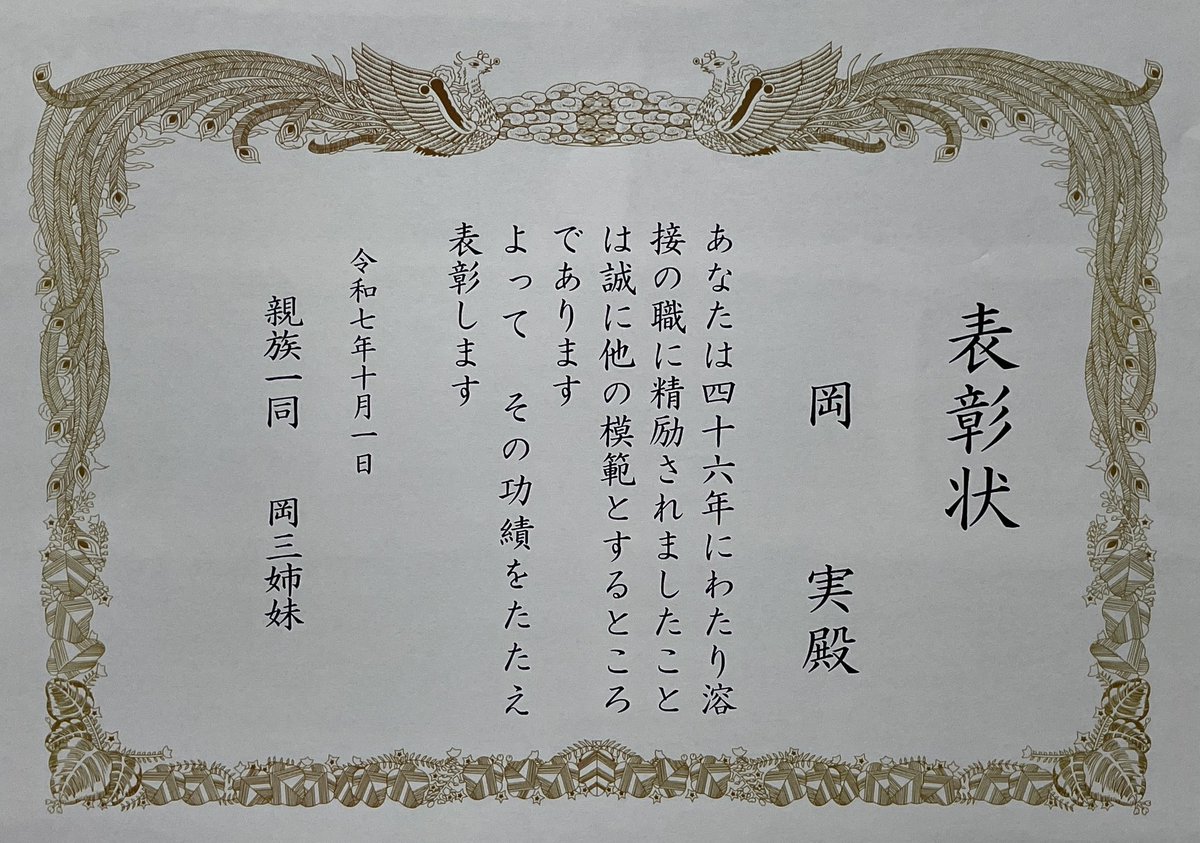 表彰状
岡　実殿
あなたは四十六年にわたり溶
接の職に精励されましたこと
は誠に他の模範とするところ
であります
よって　その功績をたたえ
表彰します
令和七年十月一日
親族一同　岡三姉妹